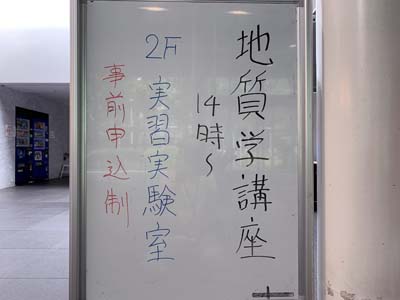 地質学講座
14時〜
2F 実習実験室
事前申込制